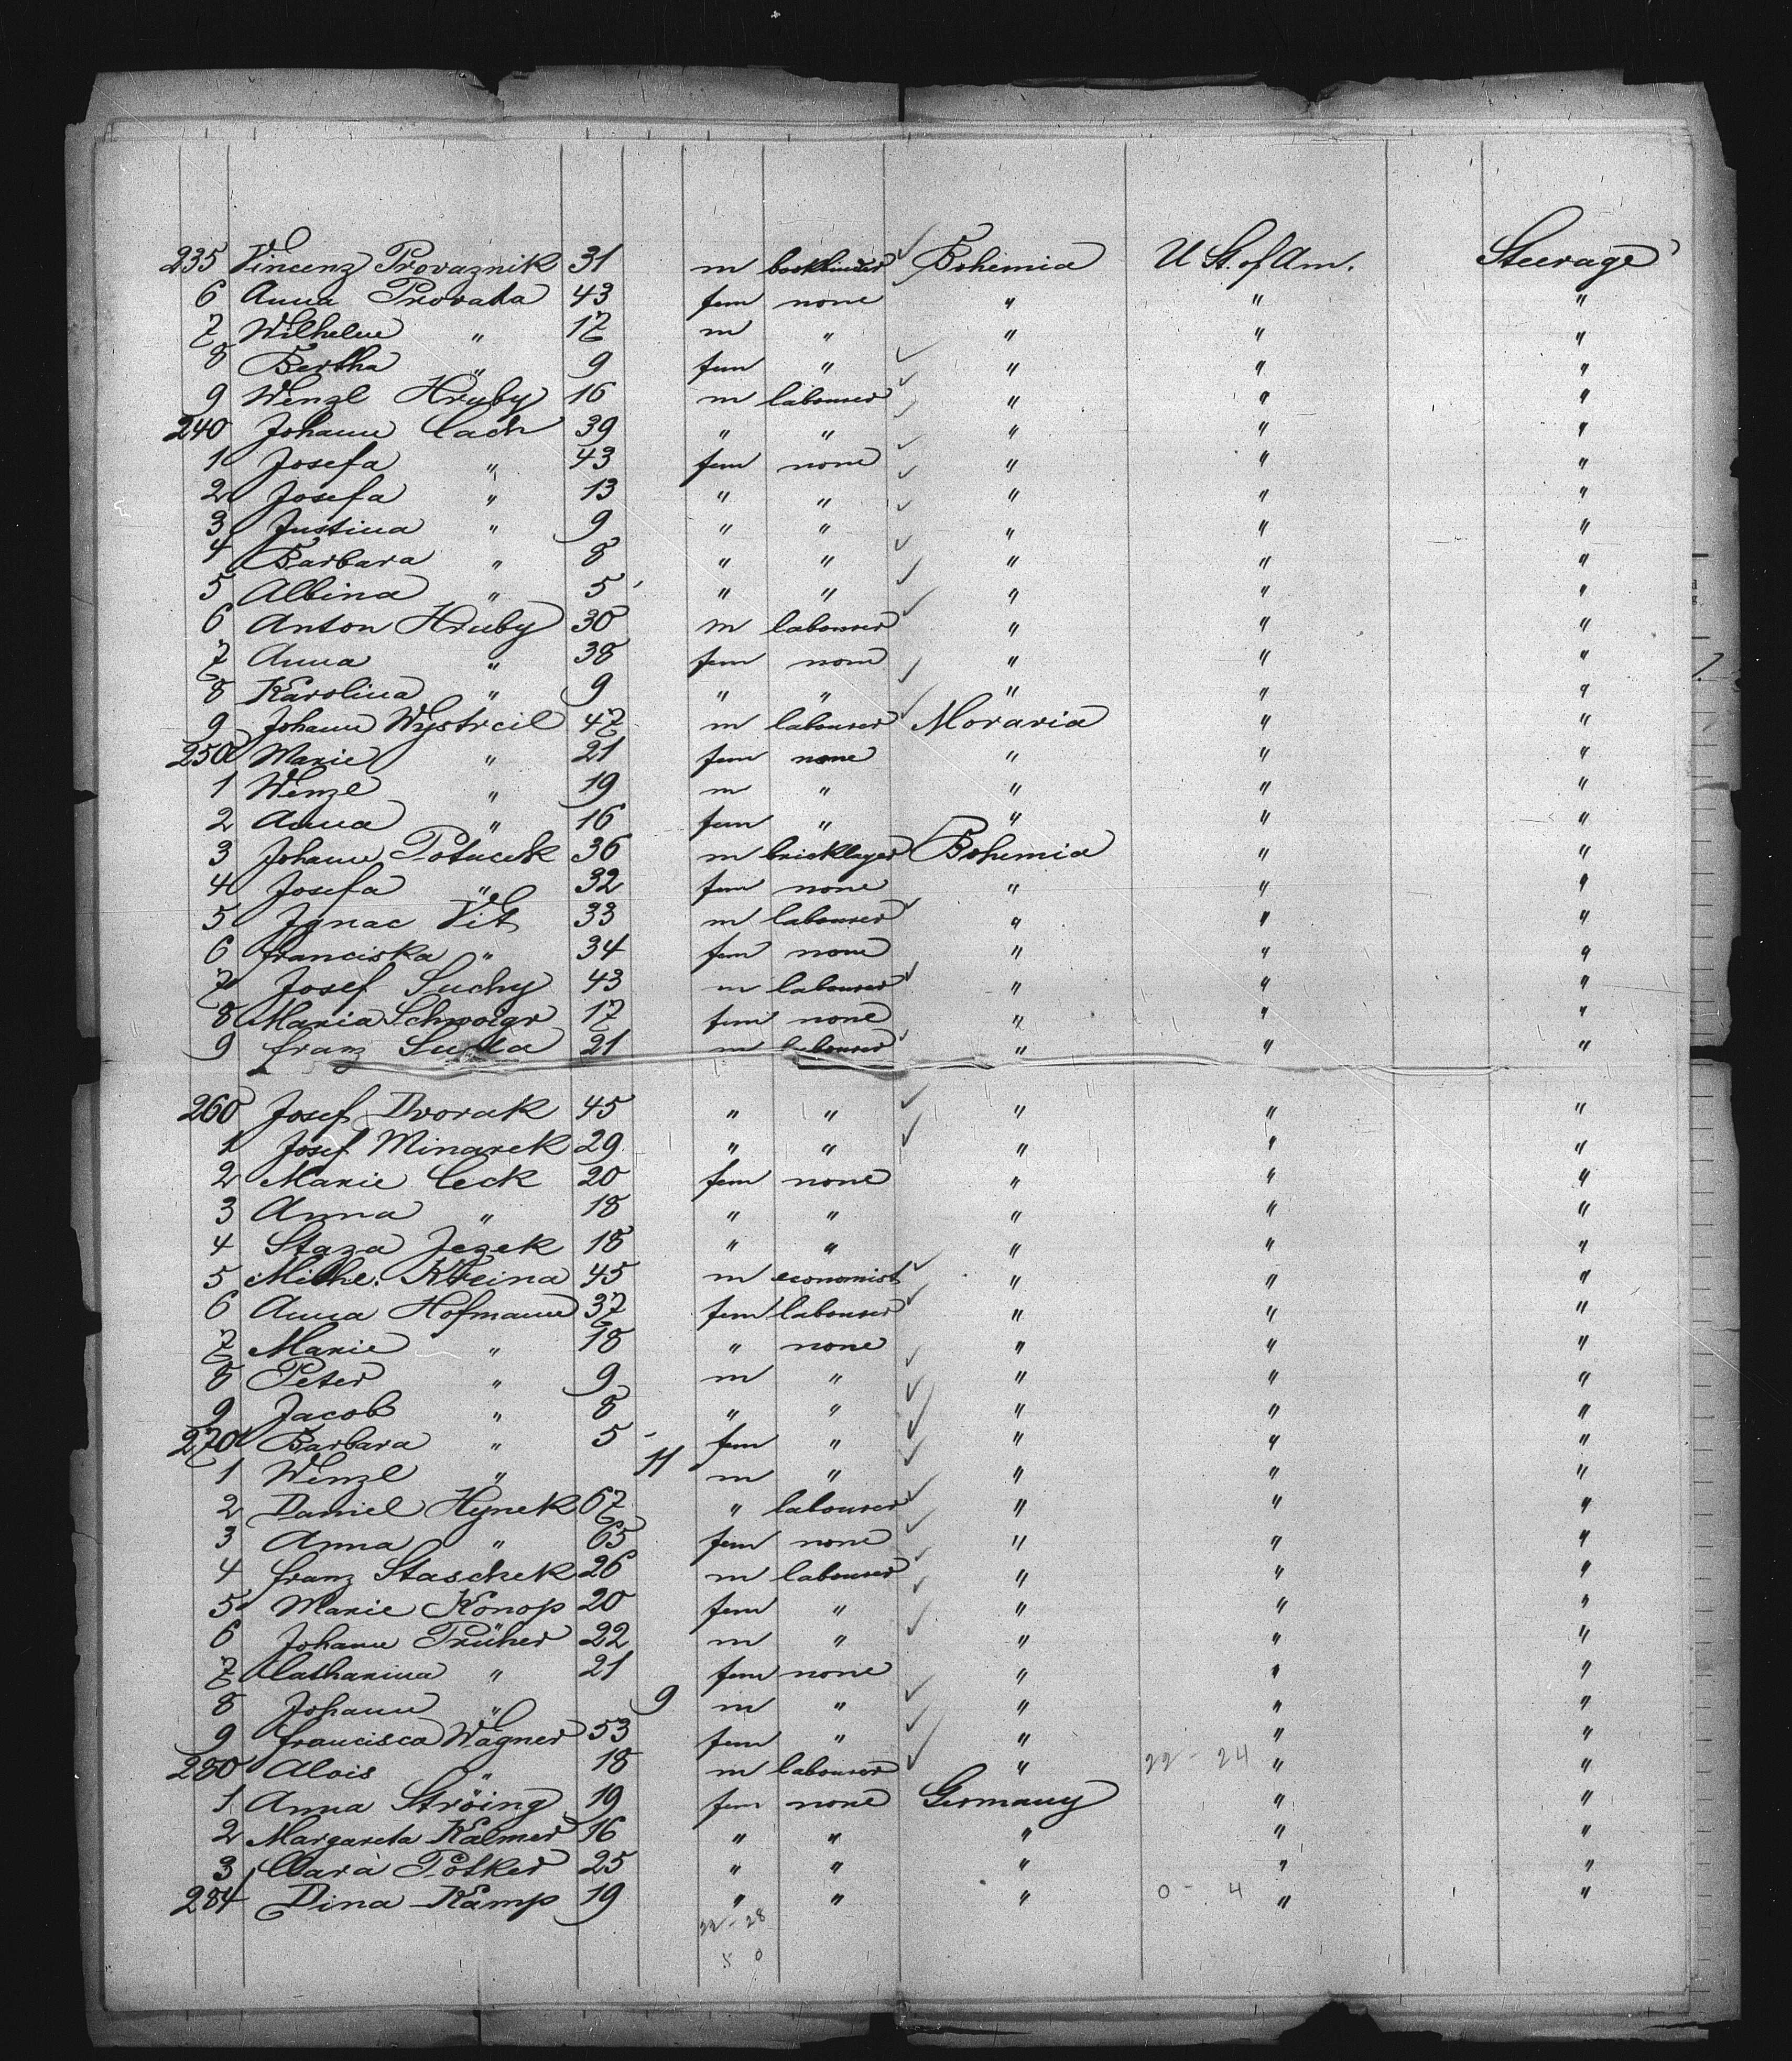 235 Vincenz Provaznik 31 m bookbinder Bohemia U St. of Am. Steerage
6 Anna Provata 43 fem none " " "
7 Wilhelm " 17 m " " " "
8 Bertha " 9 fem " " " "
9 Wenzl Hruby 16 m labourer " " "
240 Johann Cach 39 " " " " "
1 Josefa " 43 fem none " " "
2 Josefa " 13 " " " " "
3 Justina " 9 " " " " "
4 Barbara " 8 " " " " "
5 Albina " 5 " " " " "
6 Anton Hruby 30 m labourer " " "
7 Anna " 38 fem none " " "
8 Karolina " 9 " " " " "
9 Johann Wystrcil 47 m labourer Moravia " "
250 Marie " 21 fem none " " "
1 Wenzl " 19 m " " " "
2 Anna " 16 fem " " " "
3 Johann Potucek 36 m bricklayer Bohemia " "
4 Josefa " 32 fem none " " "
5 Ignac Vit 33 m labourer " " "
6 Franciska " 34 fem none " " "
7 Josef Suchy 43 m labourer " " "
8 Maria Schwoigr 17 fem none " " "
9 Franz 21 m labourer " " "
260 Josef Dvorak 45 " " " " "
1 Josef Minarek 29 " " " " "
2 Marie Ceck 20 fem none " " "
3 Anna " 18 " " " " "
4 Staza Jezek 18 " " " " "
5 Miche. 45 m economist " " "
6 Anna Hofmann 37 fem labourer " " "
7 Marie " 18 " none " " "
8 Peter " 9 m " " " "
9 Jacob " 8 " " " " "
270 Barbara " 5 fem " " " "
1 Wenzl " 11 m " " " "
2 Daniel Hynek 67 " labourer " " "
3 Anna " 65 fem none " " "
4 Franz Staschek 26 m labourer " " "
5 Marie Konop 20 fem " " " "
6 Johann Prüher 22 m " " " "
7 Catharina " 21 fem none " " "
8 Johann " 9 m " " " "
9 Francisca Wagner 53 fem " " " "
280 Alois " 18 m labourer " 22 - 24 " "
1 Anna Ströing 19 fem none Germany " "
2 Margareta Kalmer 16 " " " " "
3 Clara Pötker 25 " " " " "
284 Dina Kamp 19 " " " 0 - 4 " "
22 - 28